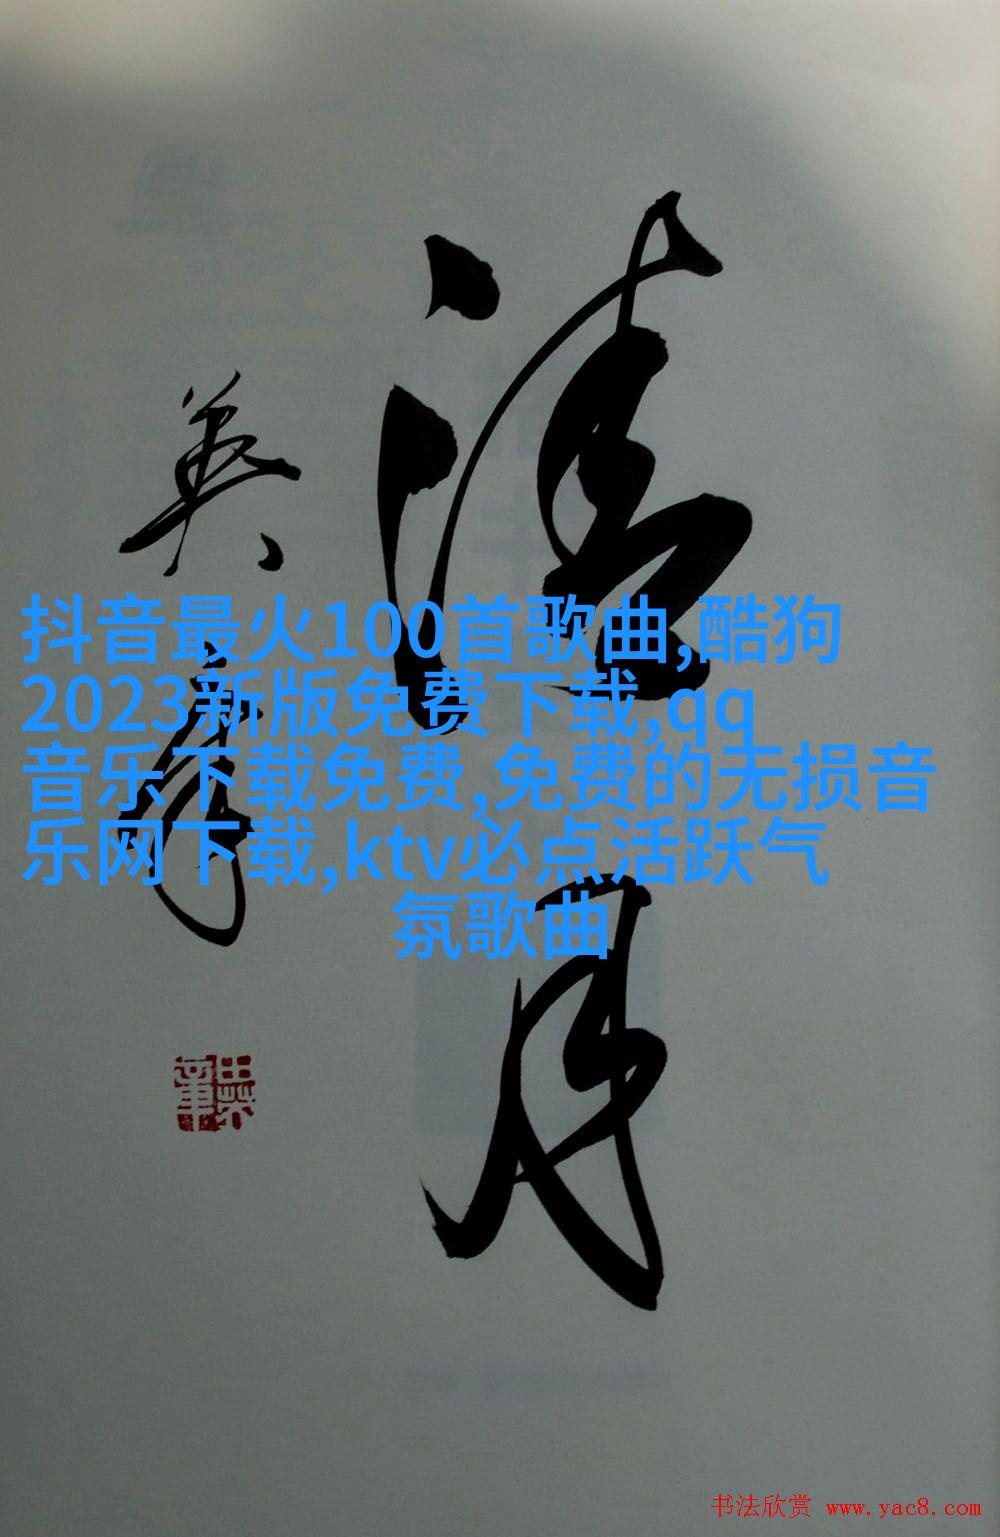 清月
英章
抖音最火100首歌曲,酷狗
2023新版免费下载,qq
音乐下载免费,免费的无损音
乐网下载,ktv必点活跃气
氛歌曲
书法欣赏 www.yac8.com